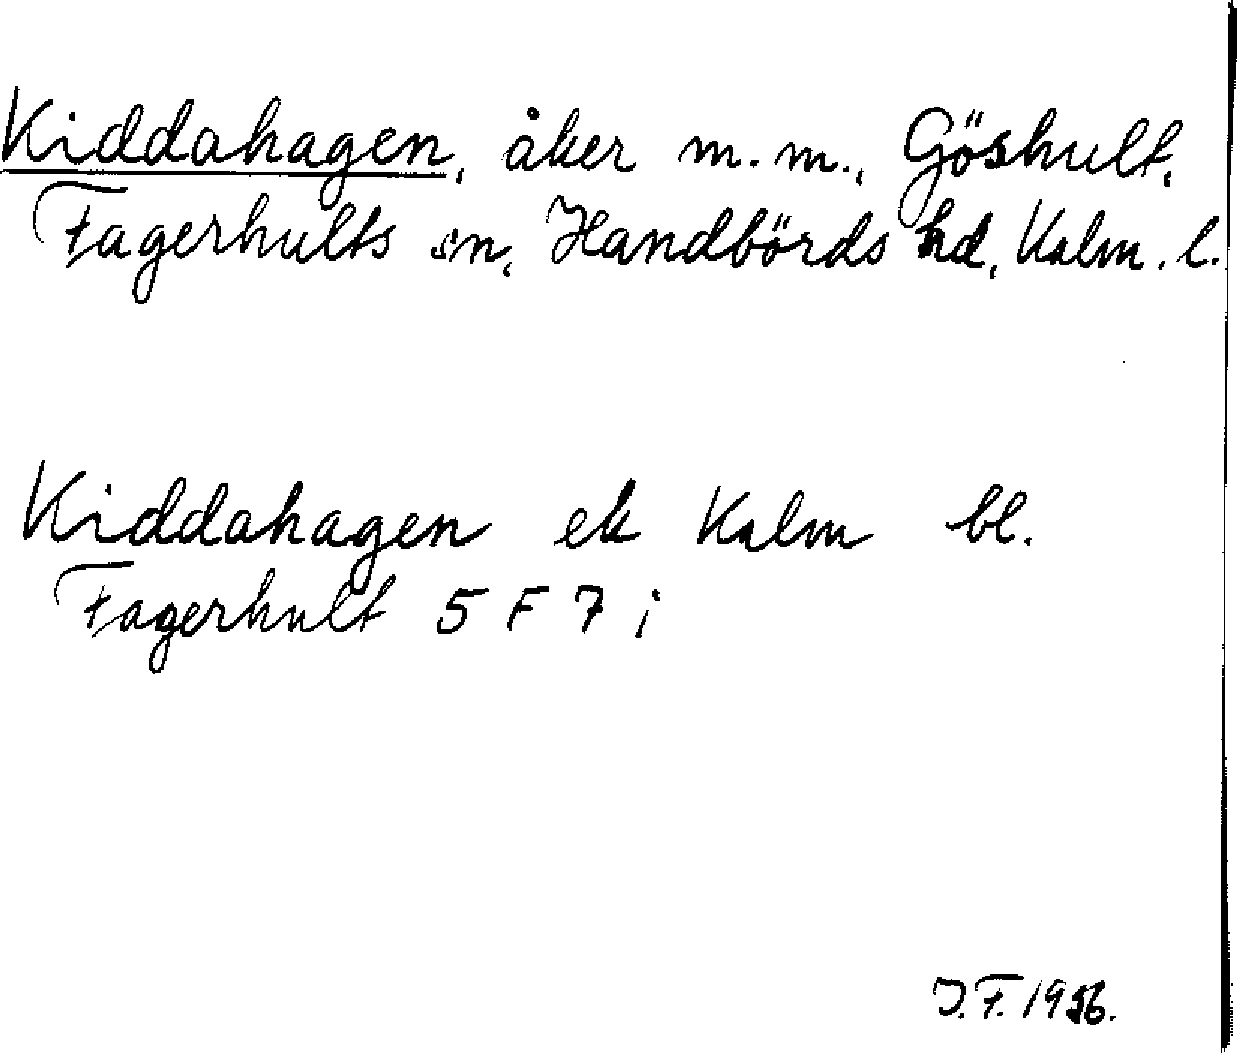 Kiddahagen, åker m.m., Göshult,
Fagerhults sn, Handbörds hd, Kalm. l.
Kiddahagen ek Kalm bl.
Fagerhult 5 F 7 i
J.F. 1956.